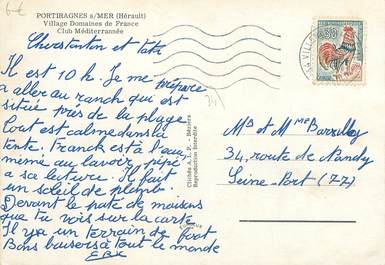 6-€
PORTIRAGNES s/MER (Hérault)
Village Domaines de France
Club Méditerranée
Christantin et tata
Il est 10 h. Je me prépare
a aller au ranch qui est
situé près de la plage
Tout est calme dans la
tente. Franck est à l'eau,
mémé au lavoir, pépé
a sa lecture. Il fait
un soleil de plomb.
Devant le paté de maisons
que tu vois sur la carte
Il y a un terrain de foot
Bons baisers à tout le monde
34
Clichés A. L. P. - Béziers
Reproduction interdite
0,25
Mr et Mme
34, route de Nandy
Seine-Port (77)